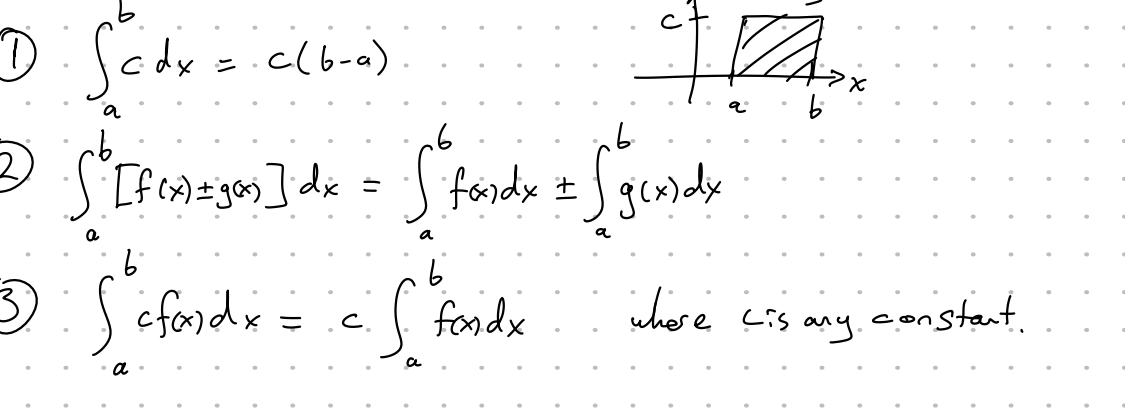 ① ∫_a^b c dx = c(b-a)
c
x
a b
② ∫_a^b [f(x)±g(x)] dx = ∫_a^b f(x)dx ± ∫_a^b g(x)dx
③ ∫_a^b cf(x)dx = c ∫_a^b f(x)dx where c is any constant.